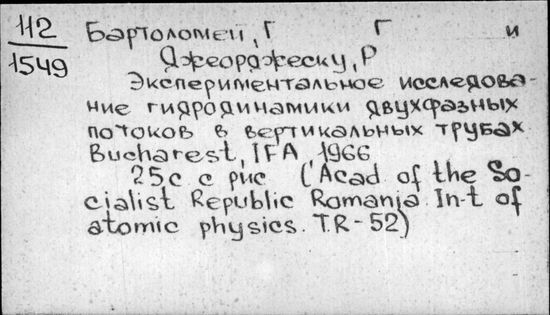 112 Бартоломей, Г Г и
1549 Джеорджеску, Р
Экспериментальное исследова-
ние гидродинамики двухфазных
потоков в вертикальных трубах
Bucharest, IFA, 1966
25с с рис (Acad of the So-
cialist Republic Romania In-t of
atomic physics. TR-52)